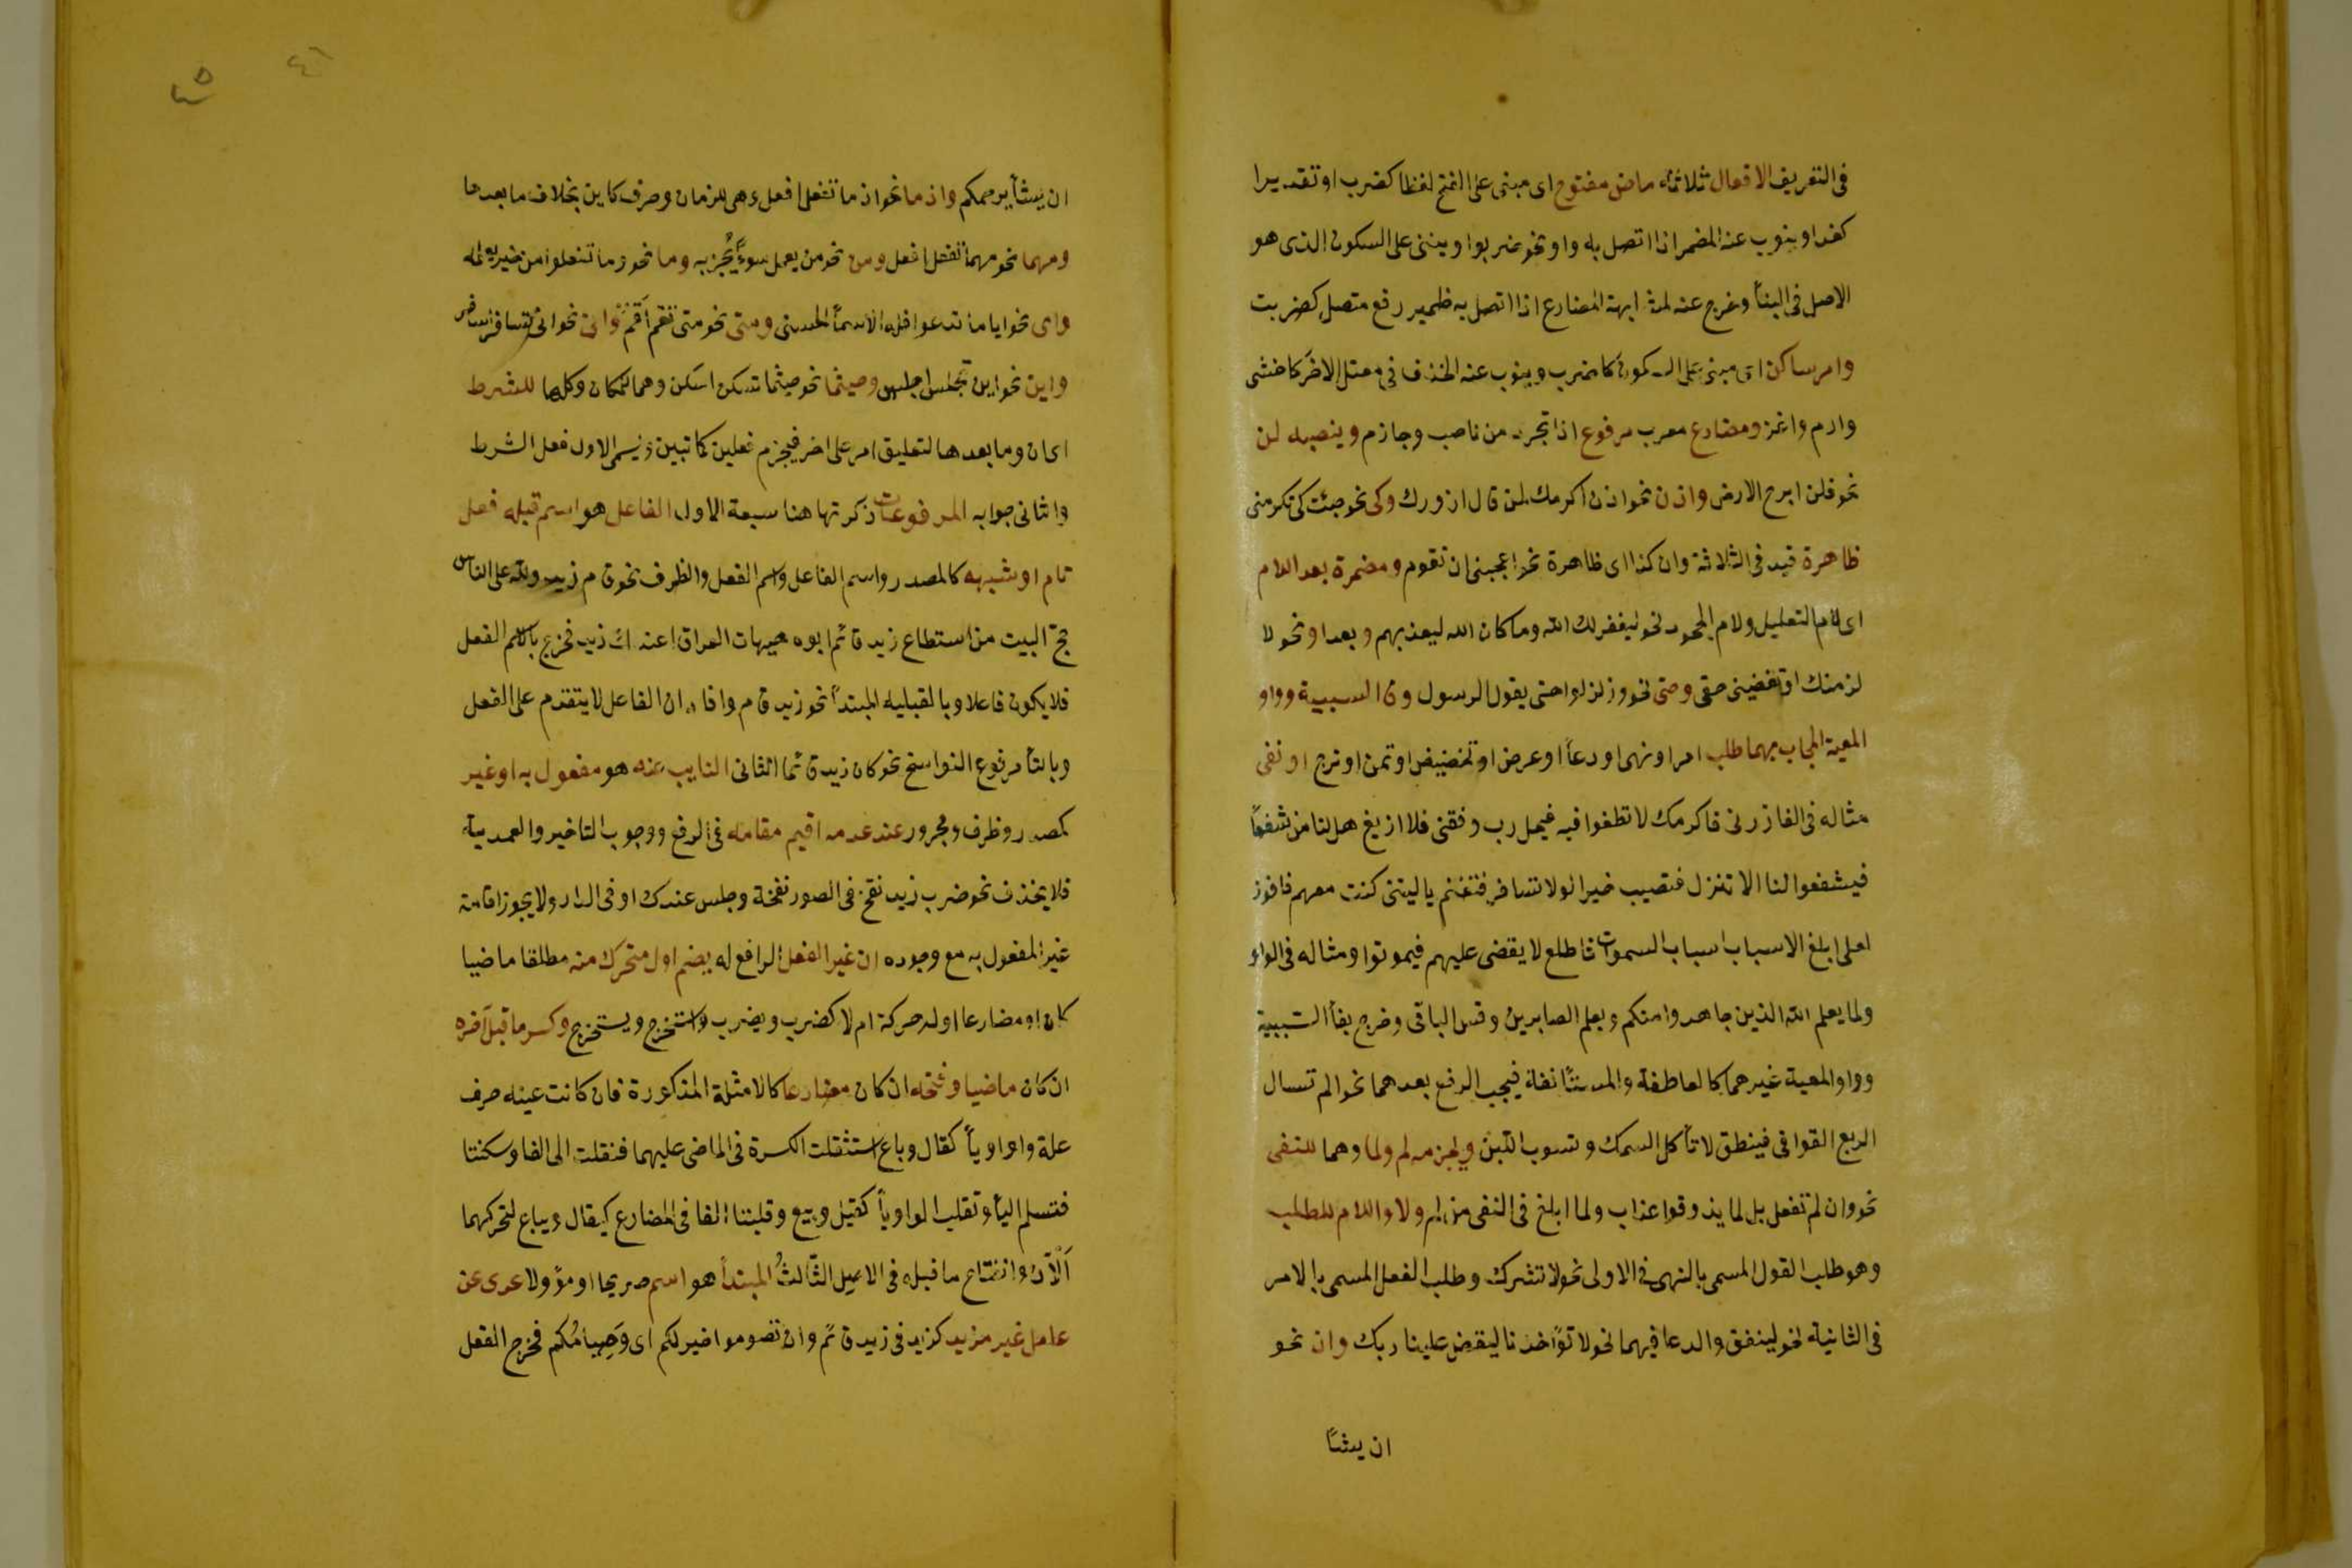 فى التعريف الافعال ثلاثة ماض مفتوح اى مبنى على الفتح لفظا كضرب او تقديرا
كغدا وينوب عنه المضم اذا اتصل به واو نحو ضربوا ويبنى على السكون الذى هو
الاصل فى البنأ وخرج عنه لمشابهة المضارع اذا اتصل به ضمير رفع متصل كضربت
وامر ساكن اى مبنى على السكون كاضرب وينوب عنه الحذف فى معتل الاخر كاخشى
وارم واغز ومضارع معرب مرفوع اذا تجرد من ناصب وجازم وينصبه لن
نحو فلن ابرح الارض واذن نحو اذن اكرمك لمن قال ازورك وكى نحو جئت كى تكرمنى
ظاهرة قيد فى الثلاثة وان كذا اى ظاهرة نحو اعجبنى ان تقوم ومضمرة بعد اللام
اى لام التعليل ولام الجحود نحو ليغفر لك الله وما كان الله ليعذبهم وبعد او نحو لا
لزمنك او تقضينى حقى وحتى نحو وزلزلوا حتى يقول الرسول وفا السببية وواو
المعية المجاب بهما طلب امر او نهى او دعأ او عرض او تحضيض او تمن او ترج او نفى
مثاله فى الفا زرنى فاكرمك لا تطغوا فيه فيحل رب وفقنى فلا ازيغ هل لنا من شفعأ
فيشفعوا لنا الا تنزل فتصيب خيرا لولا تسافر فتغنم ياليتنى كنت معهم فافوز
لعلى ابلغ الاسباب اسباب السموات فاطلع لا يقضى عليهم فيموتوا ومثاله فى الواو
ولما يعلم الله الذين جاهدوا منكم ويعلم الصابرين وقس الباقى وخرج بفأ السببية
وواو المعية غيرهما كالعاطفة والمستأنفة فيجب الرفع بعدهما نحو الم تسال
الربع القوا فى فينطق لا تأكل السمك وتشرب اللبن ويجزمه لم ولما وهما للنفى
نحو وان لم تفعل بل لما يذوقوا عذاب ولما ابلغ فى النفى من لم ولا واللام للطلب
وهو طلب القول المسمى بالنهى فى الاولى نحو لا تشرك وطلب الفعل المسمى بالامر
فى الثانية نحو لينفق والدعا فيهما نحو لا تؤاخذنا ليقض علينا ربك وان نحو
ان يشأ
ان يشأ يرحمكم واذما نحو اذما تفعل افعل وهى للزمان وحرف كاين بخلاف ما بعدها
ومهما نحو مهما تفعل افعل ومن نحو من يعمل سوءً يُجز به وما نحو وما تفعلوا من خير يعلمه
واى نحو اياما تدعوا فله الاسمأ الحسنى ومتى نحو متى تقم اَقم وانى نحو انى تسافر اسافر
واين نحو اين تجلس اجلس وحيثما نحو حيثما تسكن اسكن وهما للمكان وكلها للشرط
اى ان وما بعدها لتعليق امر على اخر فيجزم فعلين كما تبين ويسمى الاول فعل الشرط
والثانى جوابه المرفوعات ذكرتها هنا سبعة الاول الفاعل هو اسم قبله فعل
تام او شبهه كالمصدر واسم الفاعل واسم الفعل والظرف نحو قام زيد ولله على الناس
حج البيت من استطاع زيد قائم ابوه هيهات العراق اعندك زيد فخرج بالاسم الفعل
فلا يكون فاعلا وبالقبلية المبتدأ نحو زيد قام وافاد ان الفاعل لا يتقدم على الفعل
وبالتام مرفوع النواسخ نحو كان زيد قائما الثانى النايب عنه هو مفعول به او غير
كمصدر وظرف ومجرور عند عدمه اقيم مقامه فى الرفع ووجوب التاخير والعمدية
فلا يحذف نحو ضرب زيد نفخ فى الصور نفخة وجلس عندك او فى الدار ولا يجوز اقامة
غير المفعول به مع وجوده ان غير الفعل الرافع له بضم اول متحرك منه مطلقا ماضيا
كان او مضارعا اوله حركة ام لا كضرب ويضرب واستخرج ويستخرج وكسر ما قبل آخره
ان كان ماضيا وفتحه ان كان مضارعا كالامثلة المذكورة فان كانت عينه حرف
علة واوا او يأ كقال وباع استثقلت الكسرة فى الماضى عليهما فنقلت الى الفا وسكنتا
فتسلم اليأ وتقلب الواو يأ كقيل وبيع وقلبتا الفا فى المضارع كيقال ويباع لتحركهما
اَلْآن وانفتاح ما قبله فى الاصل الثالث المبتدأ هو اسم صريحا او مؤولا عرى عن
عامل غير مزيد كزيد فى زيد قائم وان تصوموا خير لكم اى وَصِيامُكم فخرج الفعل